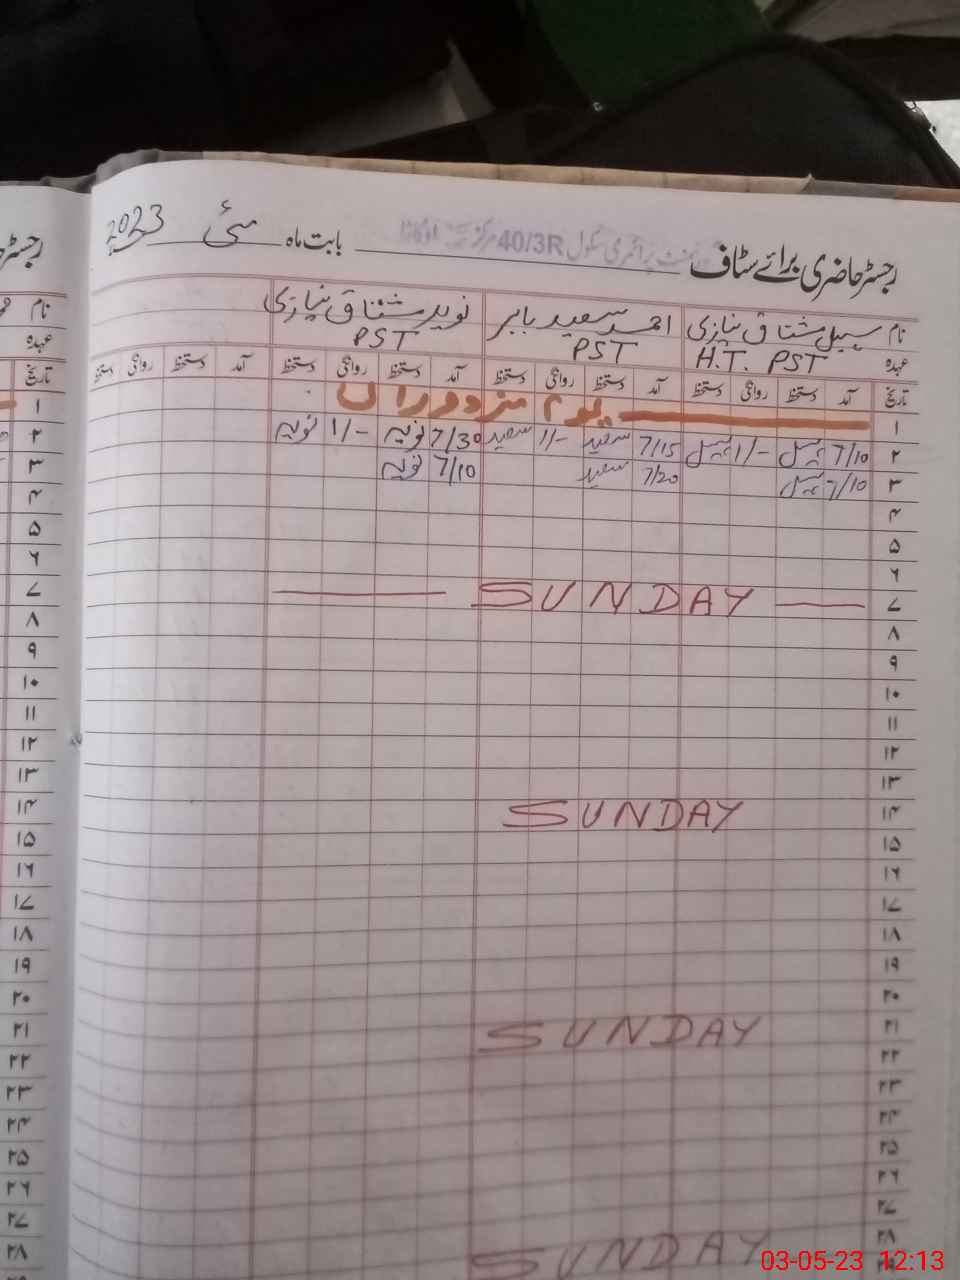 رجسٹر حاضری برائے سٹاف گورنمنٹ پرائمری سکول 40/3R مرکز اوکاڑا بابت ماہ مئی 2023
نام سہیل مشتاق نیازی احمد سعید بابر نوید مشتاق نیازی
عہدہ H.T. PST PST PST
تاریخ آمد دستخط روانگی دستخط آمد دستخط روانگی دستخط آمد دستخط روانگی دستخط آمد دستخط روانگی دستخط
۱ یوم مزدوراں
۲ 7/10 سہیل 1/- سہیل 7/15 سعید 1/- سعید 7/30 نوید 1/- نوید
۳ 7/10 سہیل 7/20 سعید 7/10 نوید
۴
۵
۶
۷ SUNDAY
۸
۹
۱۰
۱۱
۱۲
۱۳
۱۴ SUNDAY
۱۵
۱۶
۱۷
۱۸
۱۹
۲۰
۲۱ SUNDAY
۲۲
۲۳
۲۴
۲۵
۲۶
۲۷
۲۸ SUNDAY
رجسٹر
نام
عہدہ
تاریخ
۱
۲
۳
۴
۵
۶
۷
۸
۹
۱۰
۱۱
۱۲
۱۳
۱۴
۱۵
۱۶
۱۷
۱۸
۱۹
۲۰
۲۱
۲۲
۲۳
۲۴
۲۵
۲۶
۲۷
۲۸
03-05-23 12:13